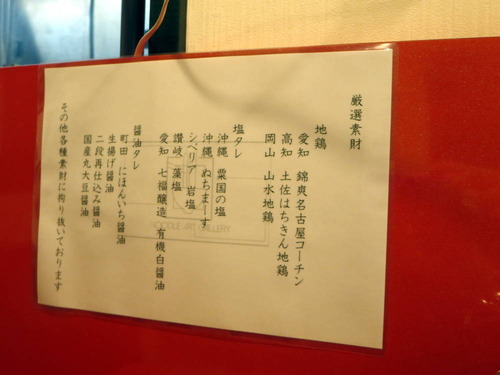 厳選素財
地鶏
愛知 錦爽名古屋コーチン
高知 土佐はちきん地鶏
岡山 山水地鶏
塩タレ
沖縄 粟国の塩
沖縄 ぬちまーす
シベリア 岩塩
讃岐 藻塩
愛知 七福醸造 有機白醤油
醤油タレ
町田 にほんいち醤油
生揚げ醤油
二段再仕込み醤油
国産丸大豆醤油
その他各種素財に拘り抜いております
NOODLE ART GALLERY